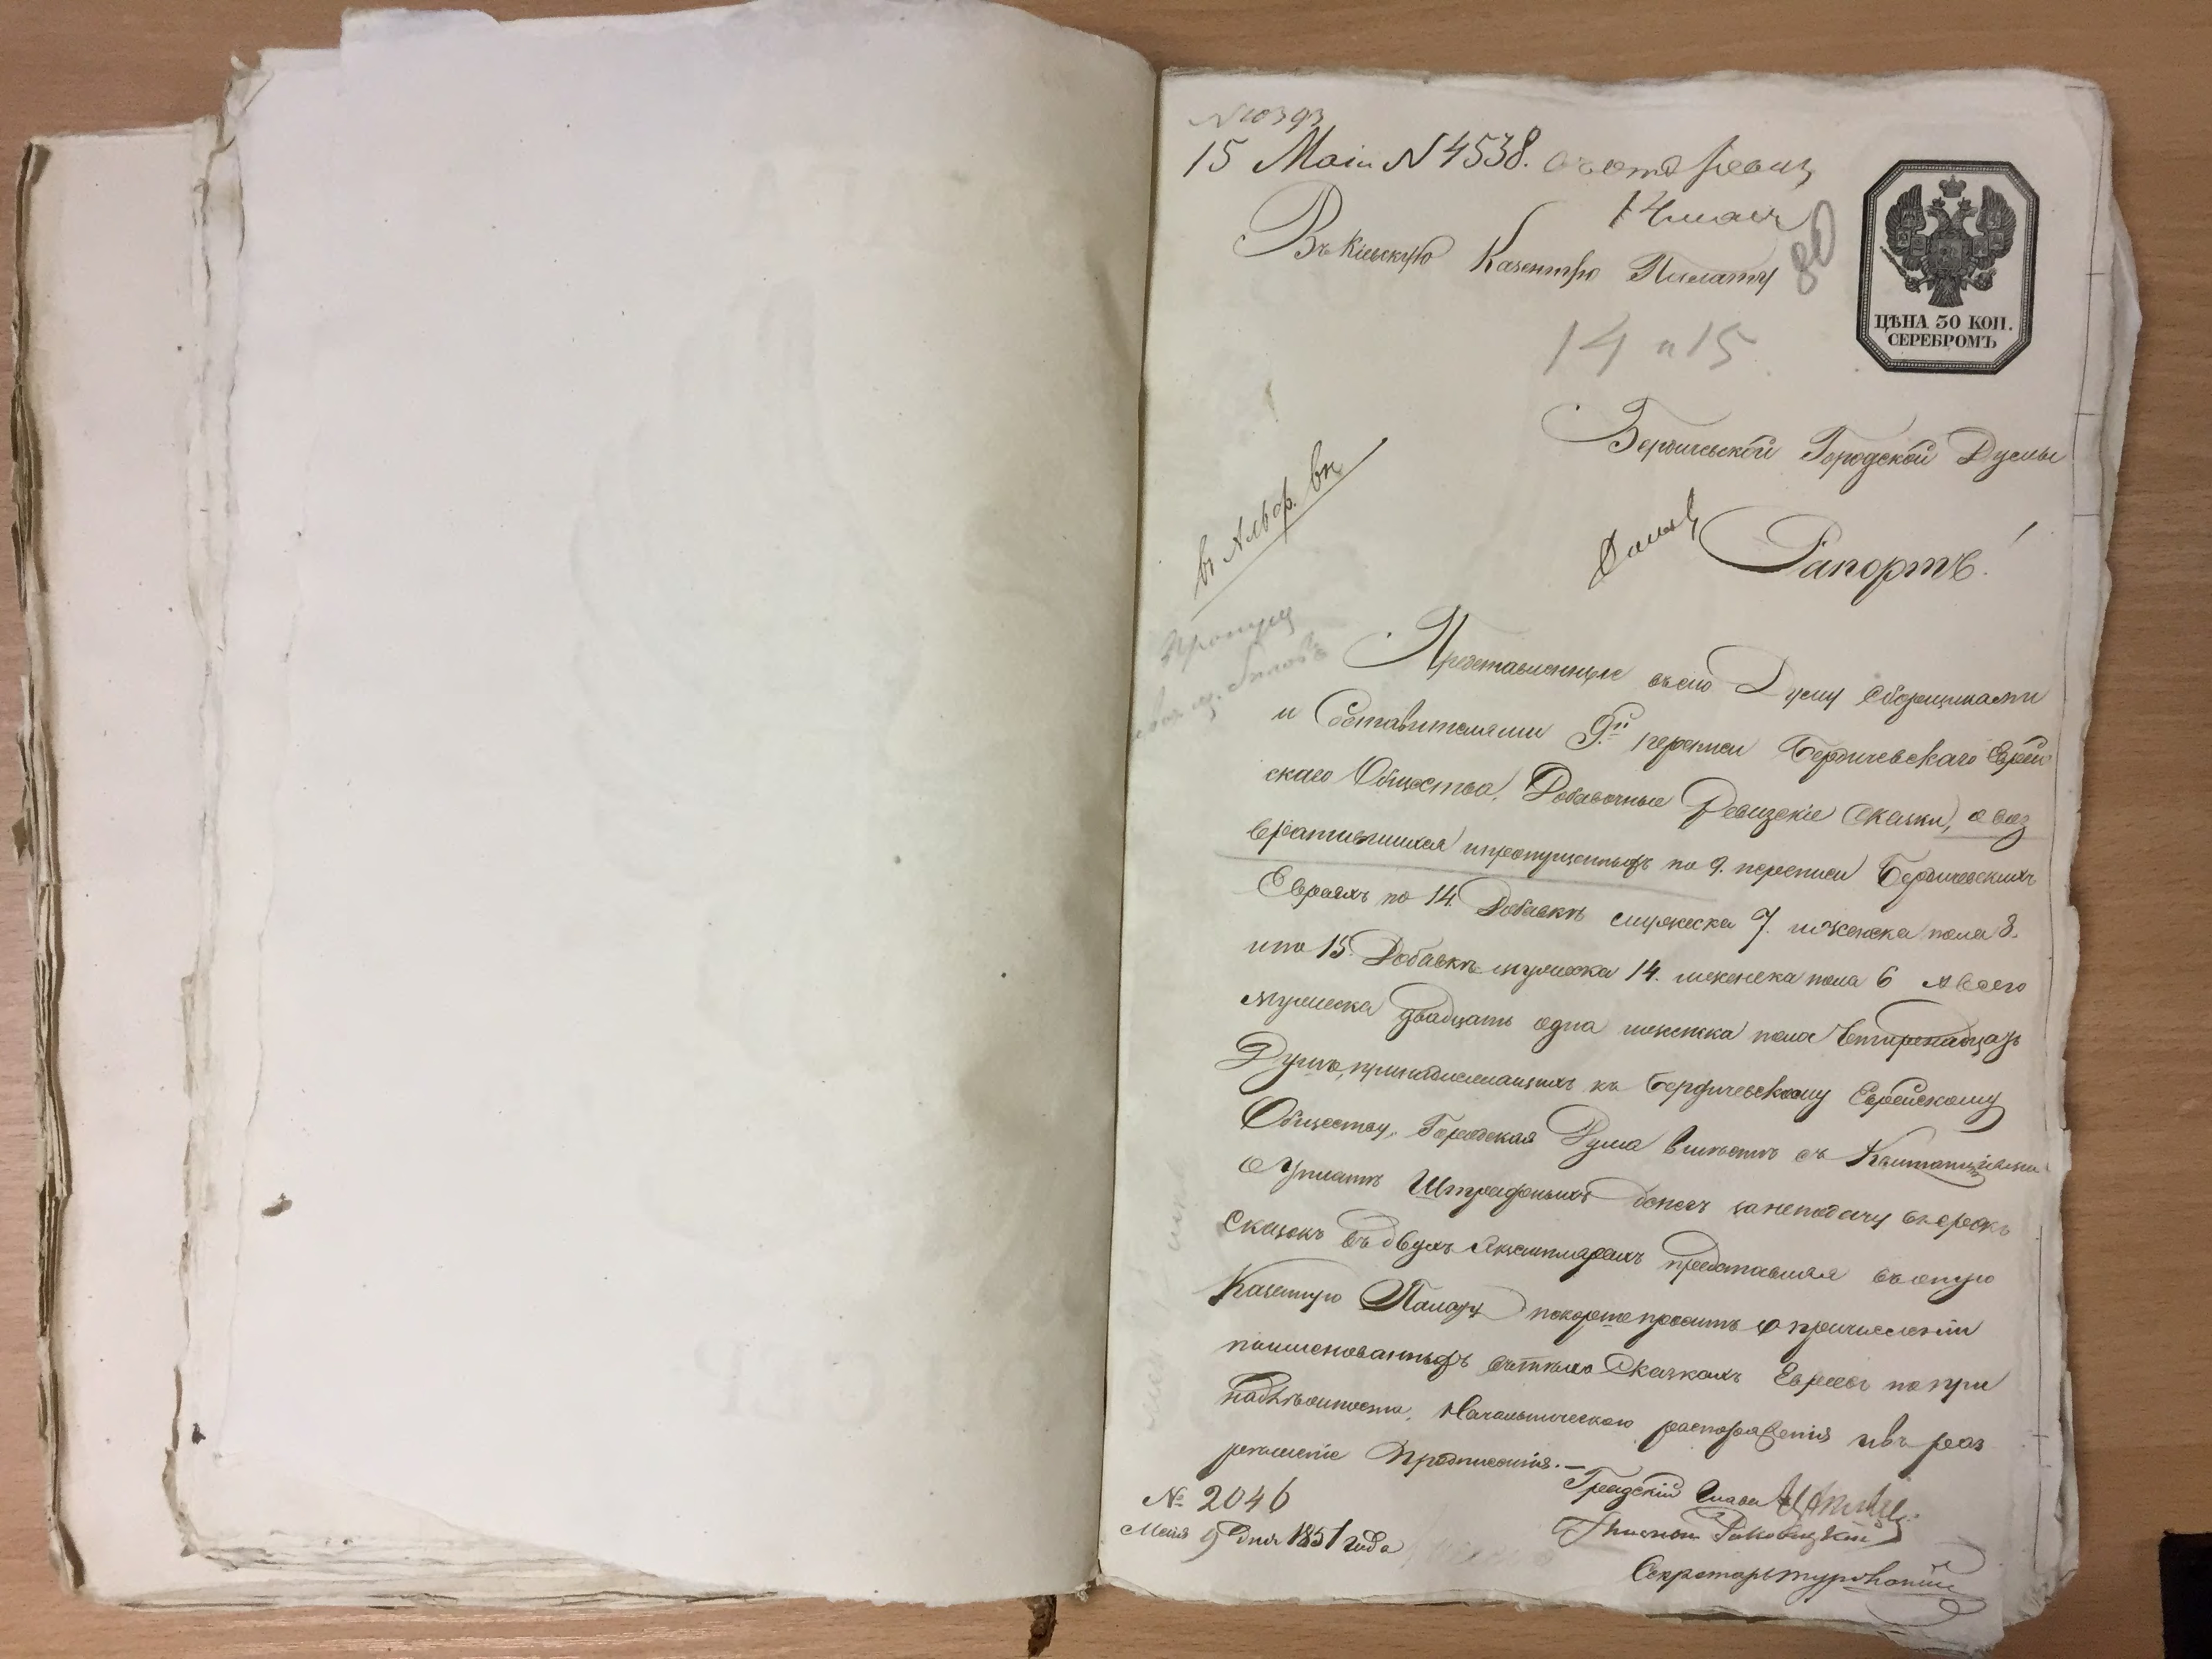 N 10393
15 Маія N 4538.
14 мая
Въ Кіевскую Казенную Палату
80
ЦѢНА 30 КОП.
СЕРЕБРОМЪ
14 и 15
Бердичевской Городской Думы
Рапортъ!
Представленные въ сію Думу Сборщиками
и Составителями 9й переписи Бердичевскаго Еврей
скаго Общества, Добавочные Ревизскіе Сказки, о воз
вратившихся и пропущенныхъ по 9. переписи Бердичевскихъ
Евреяхъ по 14. Добавкъ мужеска 7. и женска пола 8.
и по 15. Добавкъ мужеска 14. и женска пола 6 а всего
мужеска двадцать одна и женска пола Четиренадцать
Душъ, принадлежащихъ къ Бердичевскому Еврейскому
Обществу, Городская Дума вместѣ съ Квитанціями
о Уплатѣ Штрафныхъ денегъ за неподачу въ срокъ
Сказокъ въ двухъ Экземплярахъ представляя въ оную
Казенную Палату покорнѣ проситъ о причисленіи
поименованныхъ въ тѣхъ Сказкахъ Евреевъ по при
надлѣжности, Начальническаго распоряженія и въ раз
решеніе Предписанія.—
Градскій Глава
№ 2046
Маія 9 дня 1851 года
Секретарь